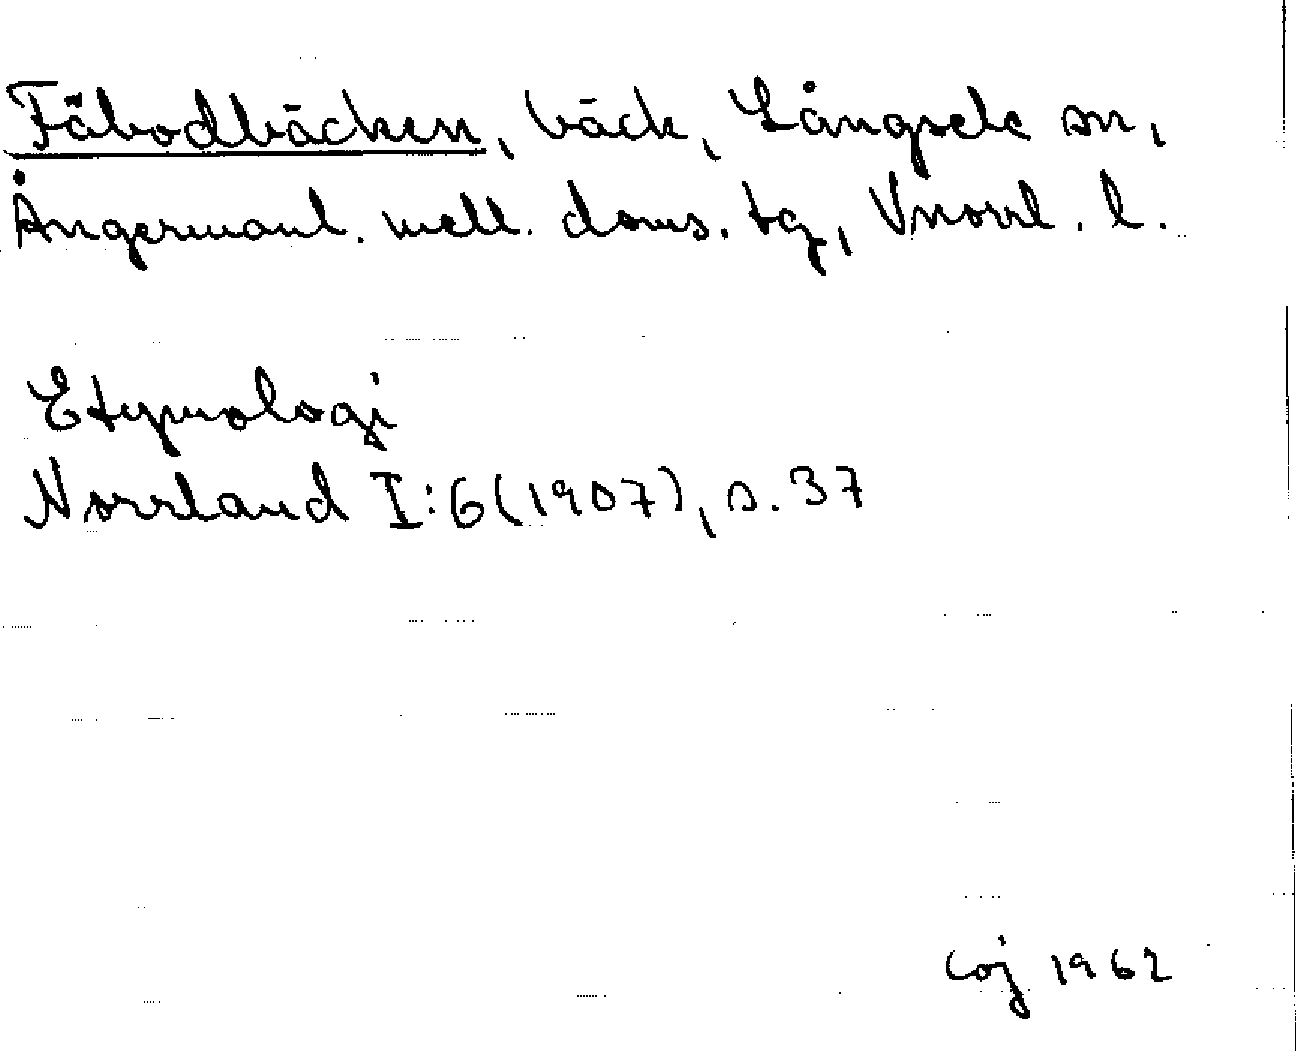 Fäbodbäcken, bäck, Långsele sn,
Ångermanl. mell. doms. tg, Vnorrl. l.
Etymologi
Norrland I:6(1907), s. 37
Coj 1962